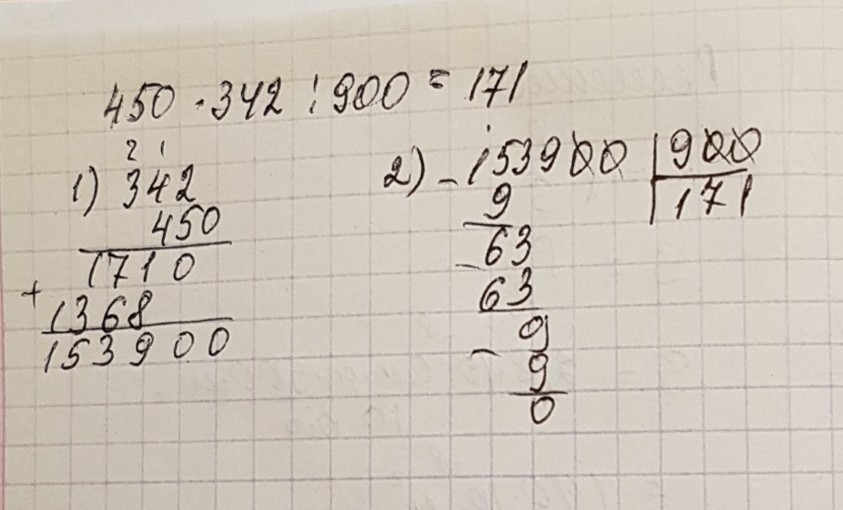 450 · 342 : 900 = 171
2 1
1) 342
450
1710
+
1368
153900
2) - 153900 | 900
9 | 171
- 63
63
- 9
9
0